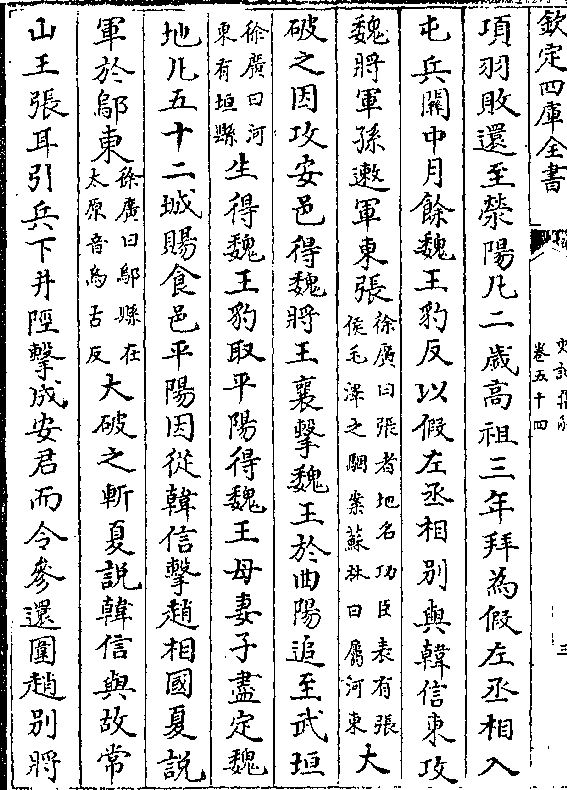 欽定四庫全書
卷五十四
三
項羽敗還至滎陽凡二歲高祖三年拜為假左丞相入
屯兵關中月餘魏王豹反以假左丞相別與韓信東攻
魏將軍孫遫軍東張徐廣曰張者地名功臣表有張侯毛澤之駰案蘇林曰屬河東大
破之因攻安邑得魏將王襄擊魏王於曲陽追至武垣
徐廣曰河東有垣縣生得魏王豹取平陽得魏王母妻子盡定魏
地凡五十二城賜食邑平陽因從韓信擊趙相國夏說
軍於鄔東徐廣曰鄔縣在太原音烏古反大破之斬夏說韓信與故常
山王張耳引兵下井陘擊成安君而令參還圍趙別將